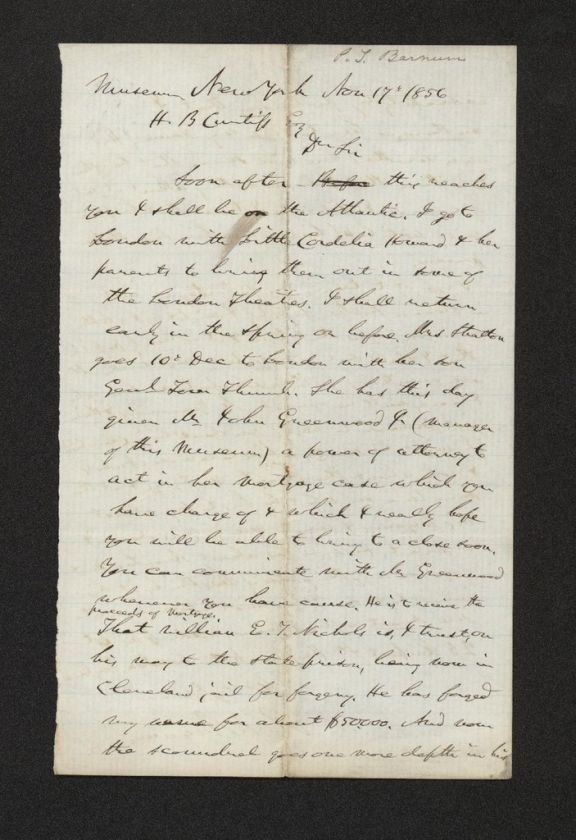 P. T. Barnum
Museum New York Nov 17th 1856
H. B Curtiss Esq
Dr Sir
Soon after this reaches
you I shall be on the Atlantic. I go to
London with Little Cordelia Howard & her
parents to bring them out in some of
the London Theatres. I shall return
early in the spring or before. Mrs Stratton
goes 10th Dec to London with her son
Genl Tom Thumb. She has this day
given Mr John Greenwood Jr (manager
of this Museum) a power of attorney to
act in her mortgage case which you
have charge of & which I really hope
you will be able to bring to a close soon.
You can communicate with Mr Greenwood
whenever you have cause. He is to receive the
proceeds of mortgage.
That villian E. T. Nichols is, I trust, on
his way to the state prison, being now in
Cleveland jail for forgery. He has forged
my name for about $50000. And now
the scoundrel goes one more depth in his